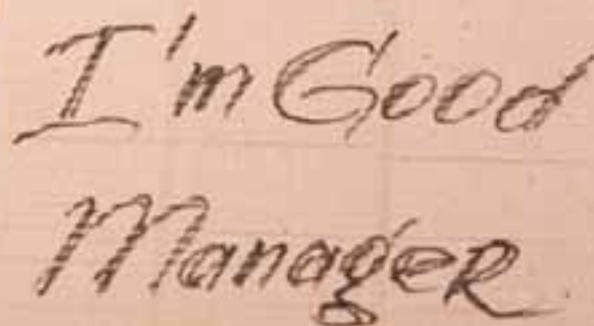 I'm Good
Manager